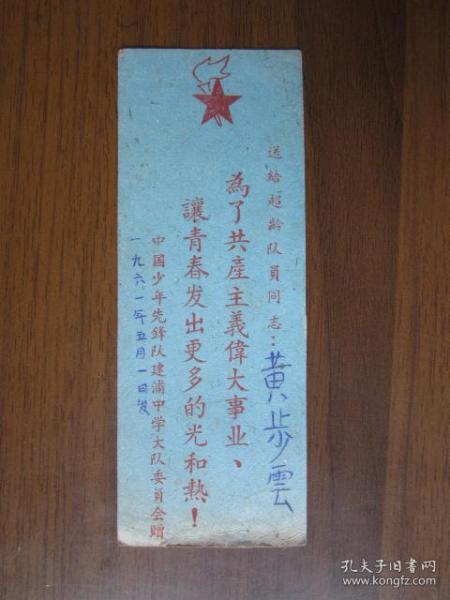 送给超龄队員同志：黄步雲
為了共產主義偉大事业、
讓青春发出更多的光和熱！
中囯少年先鋒队建浦中学大队委員会赠
一九六一年五月一日发
孔夫子旧書网
www.kongfz.com